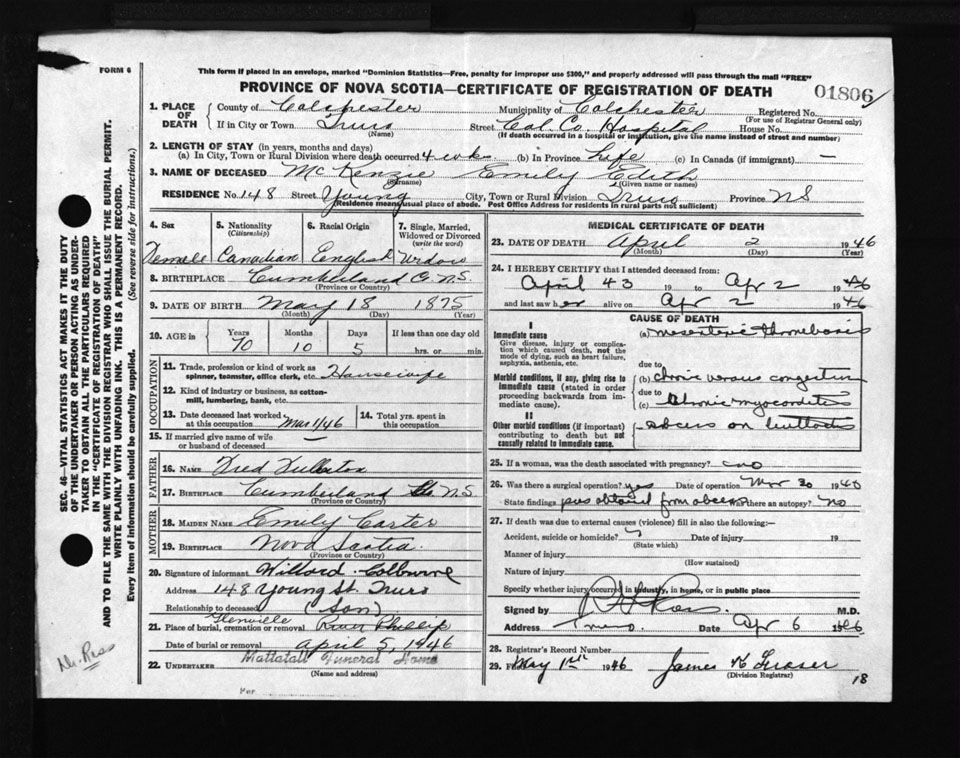 FORM 6
This form if placed in an envelope, marked "Dominion Statistics—Free, penalty for improper use $300," and properly addressed will pass through the mail "FREE"
PROVINCE OF NOVA SCOTIA—CERTIFICATE OF REGISTRATION OF DEATH
01806
1. PLACE OF DEATH { County of Colchester Municipality of Colchester Registered No.
(For use of Registrar General only)
If in City or Town Truro Street Col. Co. Hospital House No.
(Name) (If death occurred in a hospital or institution, give the name instead of street and number)
2. LENGTH OF STAY (in years, months and days)
(a) In City, Town or Rural Division where death occurred 4 wks. (b) in Province Life (c) In Canada (if immigrant) —
3. NAME OF DECEASED McKenzie Emily Edith
(Surname) (Given name or names)
RESIDENCE No. 148 Street Young City, Town or Rural Division Truro Province NS
(Residence means usual place of abode. Post Office Address for residents in rural parts not sufficient)
4. Sex 5. Nationality (Citizenship) 6. Racial Origin 7. Single, Married, Widowed or Divorced (write the word)
Female Canadian English Widow
8. BIRTHPLACE Cumberland Co. N.S.
(Province or Country)
9. DATE OF BIRTH May 18 1875
(Month) (Day) (Year)
10. AGE in Years Months Days If less than one day old
70 10 5 hrs. or min.
OCCUPATION
11. Trade, profession or kind of work as spinner, teamster, office clerk, etc. Housewife
12. Kind of industry or business, as cotton-mill, lumbering, bank, etc.
13. Date deceased last worked at this occupation Mar 1/46 14. Total yrs. spent in this occupation
15. If married give name of wife or husband of deceased —
FATHER
16. NAME Fred Fullerton
17. BIRTHPLACE Cumberland Co N.S.
(Province or Country)
MOTHER
18. MAIDEN NAME Emily Carter
19. BIRTHPLACE Nova Scotia.
(Province or Country)
20. Signature of informant Willard Colburne
Address 148 Young St. Truro
Relationship to deceased (Son)
21. Place of burial, cremation or removal Glenville River Phillip
Date of burial or removal April 5, 1946
22. UNDERTAKER Mattatall Funeral Home
(Name and address)
Per
MEDICAL CERTIFICATE OF DEATH
23. DATE OF DEATH April 2 1946
(Month) (Day) (Year)
24. I HEREBY CERTIFY that I attended deceased from:
April 43 19 to Apr 2 1946
and last saw her alive on Apr 2 1946
CAUSE OF DEATH
I
Immediate cause
Give disease, injury or complication which caused death, not the mode of dying, such as heart failure, asphyxia, asthenia, etc.
(a) mesenteric thrombosis
due to
Morbid conditions, if any, giving rise to immediate cause (stated in order proceeding backwards from immediate cause).
(b) chronic venous congestion
due to
(c) Chronic myocarditis
II
Other morbid conditions (if important) contributing to death but not causally related to immediate cause.
abcess on buttocks
25. If a woman, was the death associated with pregnancy? no
26. Was there a surgical operation? yes Date of operation Mar 30 1946
State findings pus obtained from abcess Was there an autopsy? No
27. If death was due to external causes (violence) fill in also the following:—
Accident, suicide or homicide? Date of injury 19
(State which)
Manner of injury
(How sustained)
Nature of injury
Specify whether injury occurred in industry, in home, or in public place
Signed by M.D.
Address Truro Date Apr 6 1946
28. Registrar's Record Number
29. May 1st 1946 James K Fraser
(Division Registrar)
18
SEC. 46—VITAL STATISTICS ACT MAKES IT THE DUTY OF THE UNDERTAKER OR PERSON ACTING AS UNDERTAKER TO OBTAIN ALL THE PARTICULARS REQUIRED IN THE "CERTIFICATE OF REGISTRATION OF DEATH" AND TO FILE THE SAME WITH THE DIVISION REGISTRAR WHO SHALL ISSUE THE BURIAL PERMIT.
WRITE PLAINLY WITH UNFADING INK. THIS IS A PERMANENT RECORD.
Every item of information should be carefully supplied. (See reverse side for instructions.)